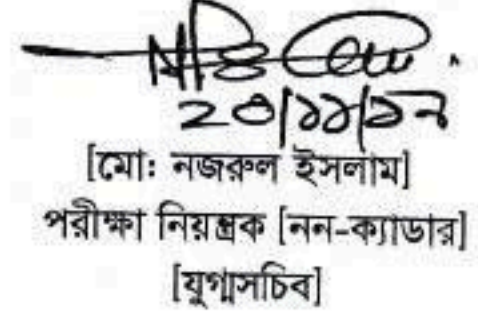 ২০|১১|১৭
[মো: নজরুল ইসলাম]
পরীক্ষা নিয়ন্ত্রক [নন-ক্যাডার]
[যুগ্মসচিব]